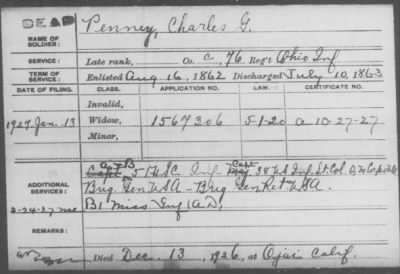 Penney, Charles G.
NAME OF SOLDIER:
SERVICE: Late rank, Co. C, 76 Reg't Ohio Inf
TERM OF SERVICE: Enlisted Aug. 16, 1862 Discharged July 10, 1863
DATE OF FILING. CLASS. APPLICATION NO. LAW. CERTIFICATE NO.
Invalid,
1927 Jan. 13 Widow, 1567306 5-1-20 a 10-27-27
Minor,
ADDITIONAL SERVICES: Capt 51 USC Inf Capt Maj 38 U S Inf. Lt Col.
Brig Gen USA - Brig Gen Ret USA.
B 1 Miss Inf (AD)
2-24-27
REMARKS:
Died Dec. 13, 1926, at Ojai Calif.